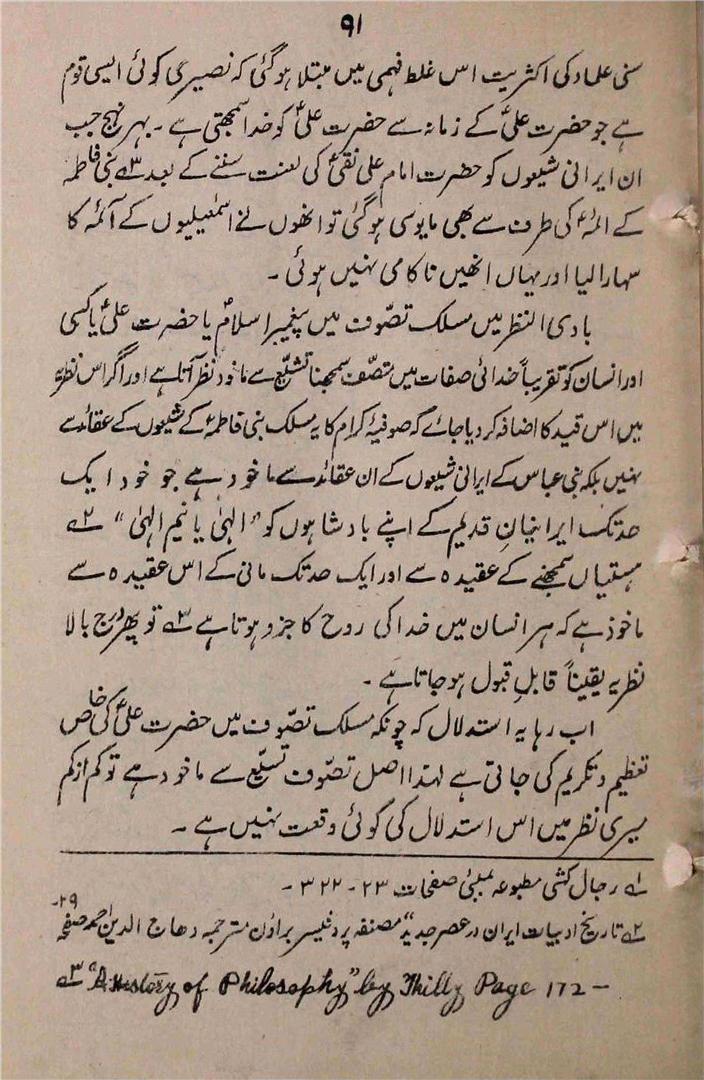 ۹۱
سنی علماء کی اکثریت اس غلط فہمی میں مبتلا ہوگئی کہ نصیری کوئی ایسی قوم
ہے جو حضرت علیؑ کے زمانہ سے حضرت علیؑ کو خدا سمجھتی ہے ۔ بہر نہج جب
ان ایرانی شیعوں کو حضرت امام علی نقیؑ کی لعنت سننے کے بعد لہ بنی فاطمہ
کے ائمہؑ کی طرف سے بھی مایوسی ہوگئی تو انھوں نے اسمٰعیلیوں کے آئمہ کا
سہارا لیا اور یہاں انھیں ناکامی نہیں ہوئی ۔
بادی النظر میں مسلک تصوّف میں پیغمبر اسلامؐ یا حضرت علیؑ یا کسی
اور انسان کو تقریباً خدائی صفات میں متصف سمجھنا تشیّع سے ماخوذ نظر آتا ہے اور اگر اس نظریہ
میں اس قید کا اضافہ کر دیا جائے کہ صوفیۂ کرام کا یہ مسلک بنی فاطمہؑ کے شیعوں کے عقائد سے
نہیں بلکہ بنی عباس کے ایرانی شیعوں کے ان عقائد سے ماخوذ ہے جو خود ایک
حد تک ایرانیانِ قدیم کے اپنے بادشاہوں کو "الہیٰ یا نیم الہیٰ" ۲ے
ہستیاں سمجھنے کے عقیدہ سے اور ایک حد تک مانی کے اس عقیدہ سے
ماخوذ ہے کہ ہر انسان میں خدا کی روح کا جزو ہوتا ہے ۳ے تو پھر درج بالا
نظریہ یقیناً قابلِ قبول ہو جاتا ہے ۔
اب رہا یہ استدلال کہ چونکہ مسلک تصوّف میں حضرت علیؑ کی خاص
تعظیم و تکریم کی جاتی ہے لہذا اصل تصوّف تشیّع سے ماخوذ ہے تو کم از کم
میری نظر میں اس استدلال کی کوئی وقعت نہیں ہے ۔
۱ے رجال کشی مطبوعہ بمبئی صفحات ۲۳ - ۳۲۲ -
۲ے تاریخ ادبیات ایران در عصر جدید" مصنفہ پروفیسر براؤن مترجمہ وھاج الدین احمد صفحہ ۲۹-
۳ے "A History of Philosophy" by Thilly Page 172 -